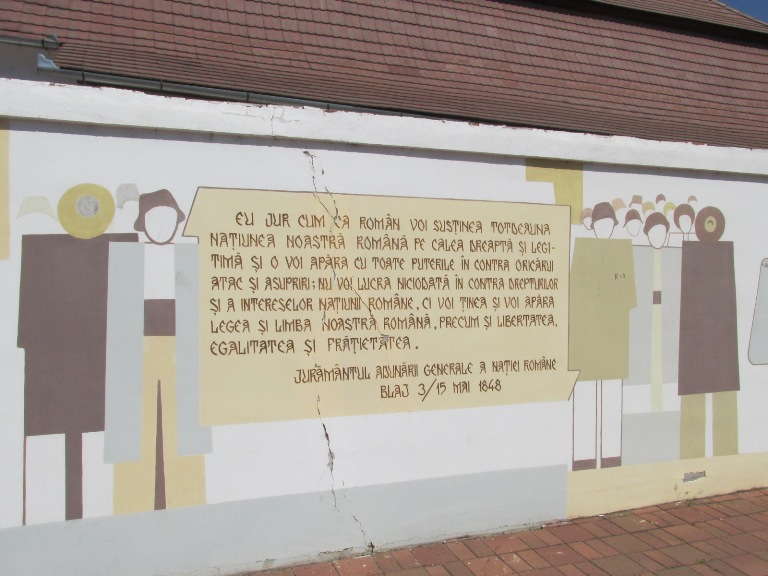 EU JUR CUM CA ROMÂN VOI SUSȚINEA TOTDEAUNA
NAȚIUNEA NOASTRĂ ROMÂNĂ PE CALEA DREAPTĂ ȘI LEGI-
TIMĂ ȘI O VOI APĂRA CU TOATE PUTERILE ÎN CONTRA ORICĂRUI
ATAC ȘI ASUPRIRI; NU VOI LUCRA NICIODATĂ ÎN CONTRA DREPTURILOR
ȘI A INTERESELOR NAȚIUNII ROMÂNE, CI VOI ȚINEA ȘI VOI APĂRA
LEGEA ȘI LIMBA NOASTRĂ ROMÂNĂ, PRECUM ȘI LIBERTATEA,
EGALITATEA ȘI FRĂȚIETATEA.
JURĂMÂNTUL ADUNĂRII GENERALE A NAȚIEI ROMÂNE
BLAJ 3/15 MAI 1848